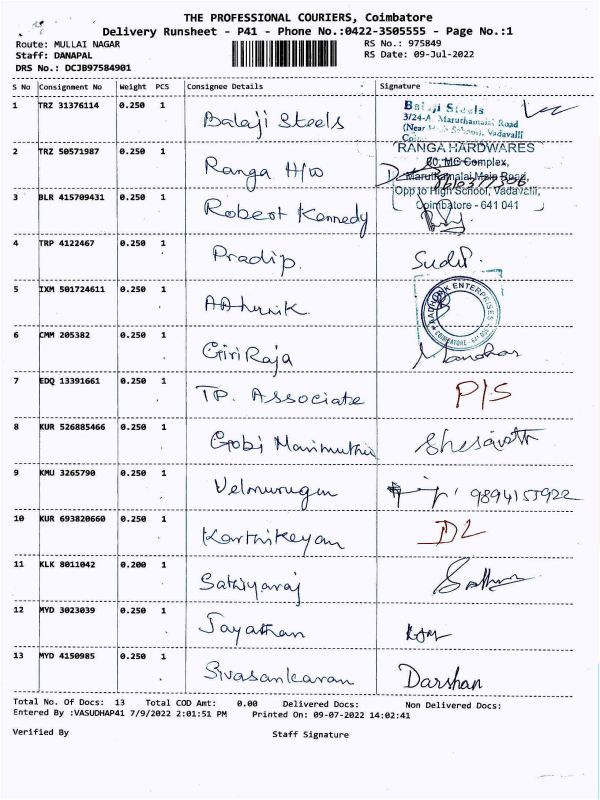 THE PROFESSIONAL COURIERS, Coimbatore
Delivery Runsheet - P41 - Phone No.:0422-3505555 - Page No.:1
Route: MULLAI NAGAR
RS No.: 975849
Staff: DANAPAL
RS Date: 09-Jul-2022
DRS No.: DCJB97584901
S No Consignment No Weight PCS Consignee Details Signature
1 TRZ 31376114 0.250 1 Balaji Steels
Balaji Steels
3/24-A, Maruthamalai Road
(Near School), Vadavalli
2 TRZ 50571987 0.250 1 Ranga H/w
RANGA HARDWARES
60, MG Complex,
Maruthamalai Main Road,
Opp to High School, Vadavalli,
Coimbatore - 641 041
3 BLR 415709431 0.250 1 Robert Kennedy
4 TRP 4122467 0.250 1 Pradip.
5 IXM 501724611 0.250 1 AAhunik
AADHUNIK ENTERPRISES
6 CMM 205382 0.250 1 GiriRaja Manohar
7 EDQ 13391661 0.250 1 TP. Associate P/S
8 KUR 526885466 0.250 1 Gobi Marimuthu
9 KMU 3265790 0.250 1 Velmurugan 9894155922
10 KUR 693820660 0.250 1 Karthikeyan DL
11 KLK 8011042 0.200 1 Sathiyaraj
12 MYD 3023039 0.250 1 Jayathan
13 MYD 4150985 0.250 1 Sivasankaran Darshan
Total No. Of Docs: 13 Total COD Amt: 0.00 Delivered Docs: Non Delivered Docs:
Entered By :VASUDHAP41 7/9/2022 2:01:51 PM Printed On: 09-07-2022 14:02:41
Verified By Staff Signature